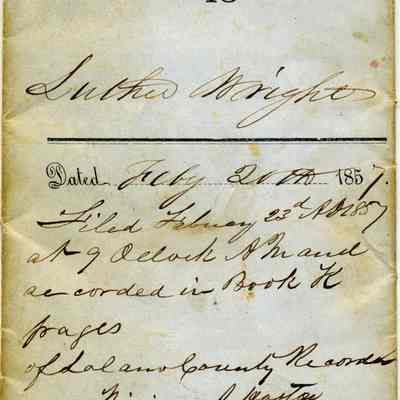 TO
Luther Wright
Dated Feby 20th 1857.
Filed Febuery 23d AD 1857
at 9 Oclock A M and
recorded in Book K
pages
of Solano County Recorder